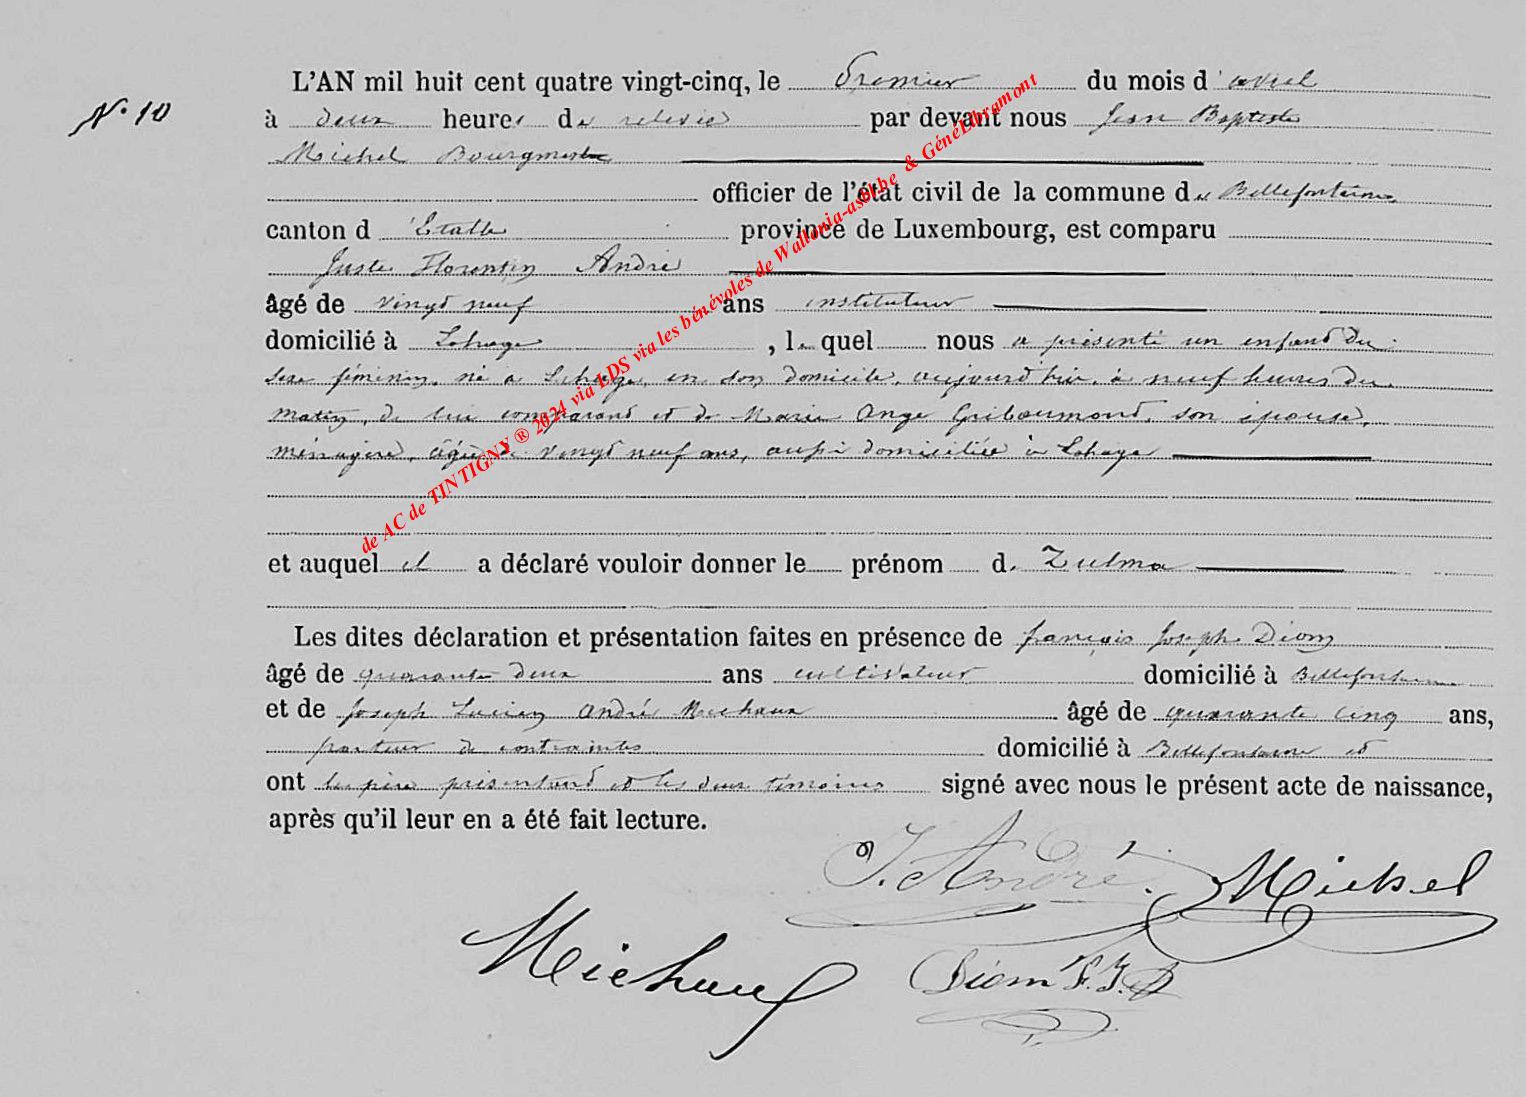 N° 10
L'AN mil huit cent quatre vingt-cinq, le Premier du mois d'avril
à deux heures de relevée par devant nous Jean Baptiste
Michel Bourgmestre
officier de l'état civil de la commune de Bellefontaine
canton d'Etalle province de Luxembourg, est comparu
Juste Florentin André
âgé de vingt neuf ans instituteur
domicilié à Lahage, lequel nous a présenté un enfant du
sexe féminin, né à Lahage, en son domicile, aujourd'hui, à neuf heures du
matin, de lui comparant et de Marie Ange Gribaumont, son épouse,
ménagère, âgée de vingt neuf ans, aussi domiciliée à Lahage
et auquel il a déclaré vouloir donner le prénom de Zulma
Les dites déclaration et présentation faites en présence de françois Joseph Diom
âgé de quarante deux ans cultivateur domicilié à Bellefontaine
et de Joseph Lucien André Michaux âgé de quarante cinq ans,
porteur de contraintes domicilié à Bellefontaine et
ont les père présentant et les deux témoins signé avec nous le présent acte de naissance,
après qu'il leur en a été fait lecture.
J. André Michel
Michaux Diom F. J.
de AC de TINTIGNY ® 2024 via LDS via les bénévoles de Wallonia-asbl.be & GénéLibramont